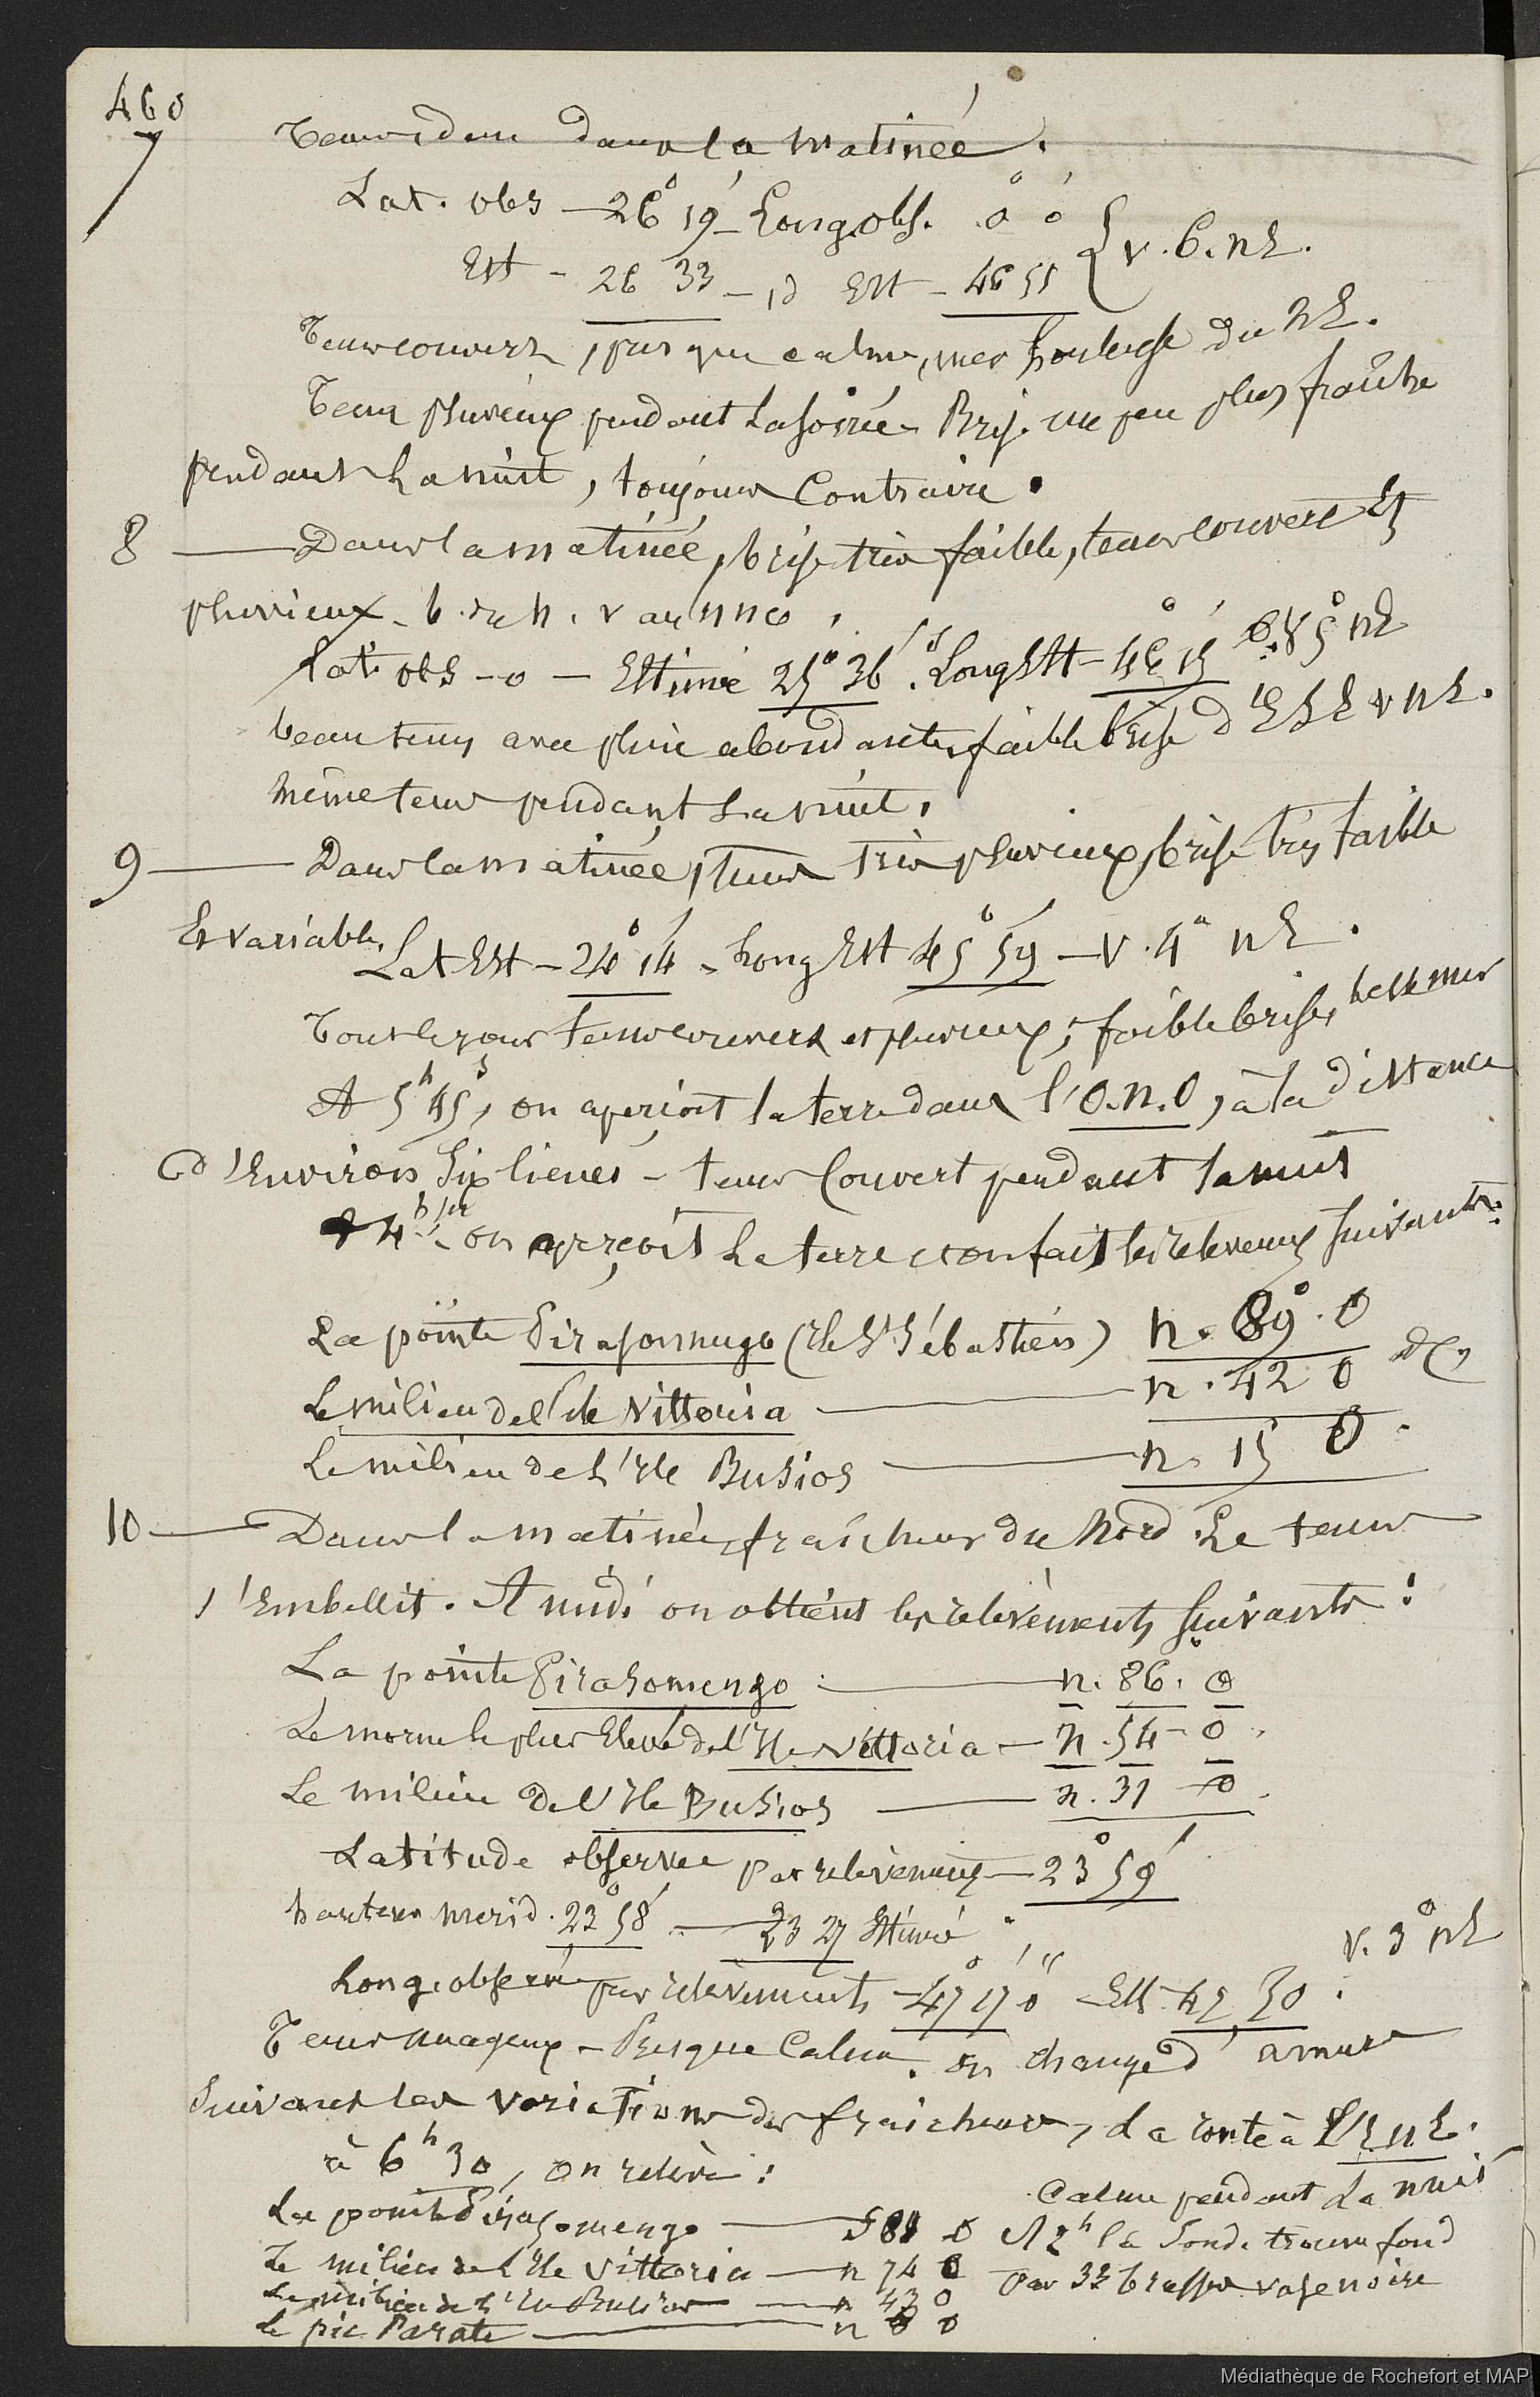 460
7
Tems idem dans la matinée.
Lat. obs — 26° 19' — Long. obs. 0° 0'
Est - 26 33 — id Est - 46 55 } v. 6. n E.
Tems couvert, presque calme, mer houleuse du n E.
Tems pluvieux pendant la soirée - Brise un peu plus fraîche
pendant la nuit, toujours contraire.
8 — Dans la matinée, brise très faible, tems couvert Et
pluvieux - b. du n. v au nno.
Lat. obs - 0 — Estimé 25° 36'. Long Est - 46° 15' 6. 85 n E
beau tems avec pluie abondante, faible brise d'E S E v n E.
même tems pendant la nuit.
9 — Dans la matinée, tems très pluvieux, brise très faible
Et variable.
Lat Est - 24° 14' - Long Est 45° 59' — v. 4° n E.
Tout le jour tems couvert et pluvieux, faible brise, belle mer
A 5h 45', on aperçoit la terre dans l'O. n. O, à la distance
d'Environ Six lieues - tems Couvert pendant la nuit
à 4h on aperçoit la terre et on fait les relevemens suivants :
La pointe Pirasonnugo (Ile St Sébastien) n. 89° . O
Le milieu de l'Ile Vittoria — n. 42 O
Le milieu de L'Ile Busios — n. 15 O.
10 — Dans la matinée, fraîcheur du Nord. Le tems
s'Embellit. A midi on obtient les relèvements suivants :
La pointe Pirasomengo : — n. 86° . O
Le morne le plus Elevé de l'Ile Vittoria — n. 54 - O.
Le milieu de l'Ile Busios — n. 31 - O.
Latitude observée par relèvemens — 23° 59'
hauteur merid. 23° 58' — 23 27 Estimé.
Long. observée par relèvements — 47° 17' 0" — Est. 47 30. v. 3° n E
Tems nuageux - Presque Calme. on change d'amure
Suivant les variations des fraicheurs, La route à L'E n E.
à 6h 30, on relève :
Calme pendant La nuit
La pointe Pirasomengo — S 88 O A 2h la Sonde trouve fond
Le milieu de l'Ile Vittoria — n 74 O Par 33 brasses vase noire
Le milieu de l'Ile Busios — n 43 O
Le pic Parate — n 0 O
Médiathèque de Rochefort et MAP